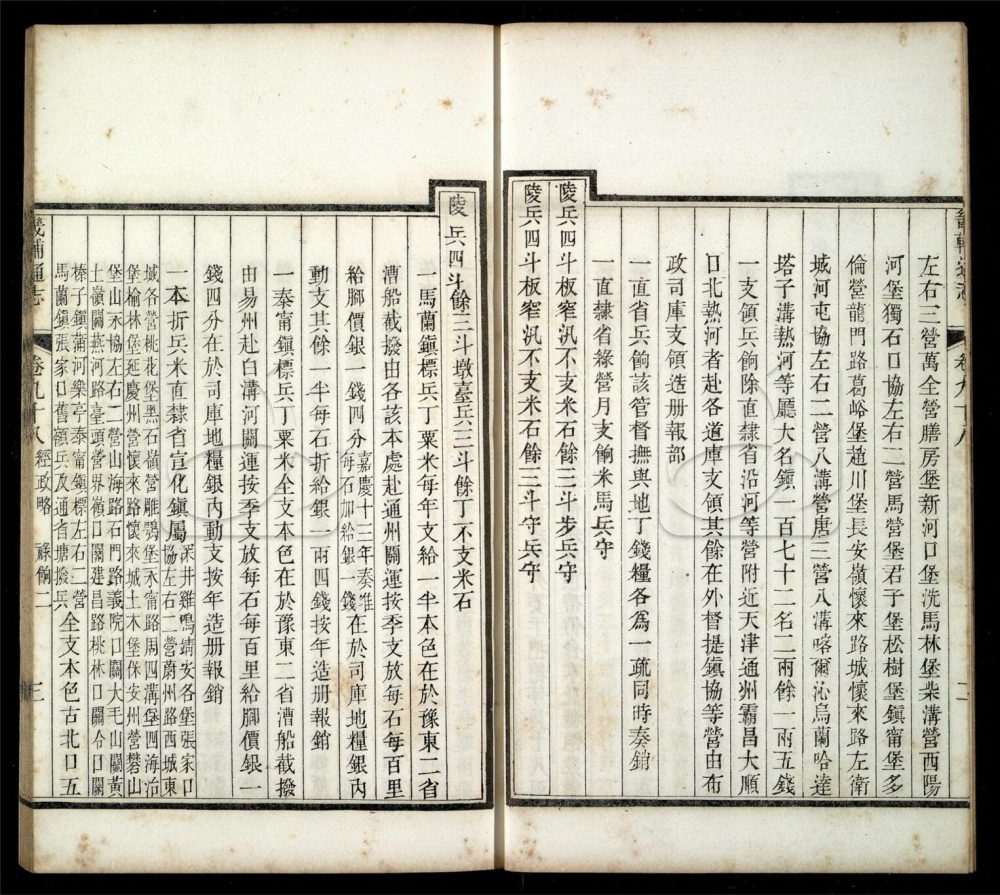 畿輔通志
卷九十八
二
左右三營萬全營膳房堡新河口堡洗馬林堡柴溝營西陽
河堡獨石口協左右二營馬營堡君子堡松樹堡鎮甯堡多
倫營龍門路葛峪堡趙川堡長安嶺懷來路城懷來路左衛
城河屯協左右二營八溝營唐三營八溝喀爾沁烏蘭哈達
塔子溝熱河等廳大名鎮一百七十二名二兩餘一兩五錢
一支領兵餉除直隸省沿河等營附近天津通州霸昌大順
口北熱河者赴各道庫支領其餘在外督提鎮協等營由布
政司庫支領造册報部
一直省兵餉該管督撫與地丁錢糧各為一疏同時奏銷
一直隸省綠營月支餉米馬兵守
陵兵四斗板窄汛不支米石餘三斗步兵守
陵兵四斗板窄汛不支米石餘三斗守兵守
陵兵四斗餘三斗墩臺兵三斗餘丁不支米石
一馬蘭鎮標兵丁粟米每年支給一半本色在於豫東二省
漕船截撥由各該本處赴通州關運按季支放每石每百里
給腳價銀一錢四分嘉慶十三年奏准每石加給銀一錢在於司庫地糧銀內
動支其餘一半每石折給銀一兩四錢按年造册報銷
一泰甯鎮標兵丁粟米全支本色在於豫東二省漕船截撥
由易州赴白溝河關運按季支放每石每百里給腳價銀一
錢四分在於司庫地糧銀內動支按年造册報銷
一本折兵米直隸省宣化鎮屬深井雞鳴靖安各堡張家口協左右二營蔚州路西城東
城各營桃花堡黑石嶺營雕鶚堡永甯路周四溝堡四海冶
堡榆林堡延慶州營懷來路懷來城土木堡保安州營礬山
堡山永協左右二營山海路石門路義院口關大毛山關黃
土嶺關燕河路臺頭營界嶺口關建昌路桃林口關冷口關
榛子鎮蒲河樂亭泰甯鎮標左右二營
馬蘭鎮張家口舊額兵及通省塘撥兵全支本色古北口五
畿輔通志
卷九十八
經政略
祿餉二
三